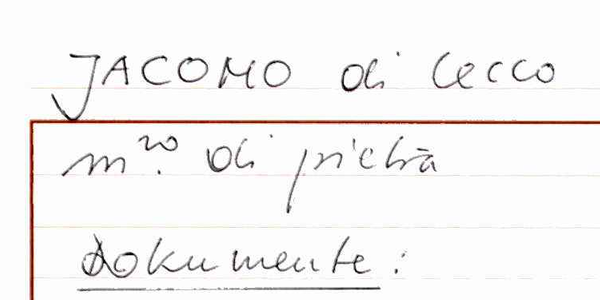 JACOMO di Cecco
m.ro di pietra
Dokumente: